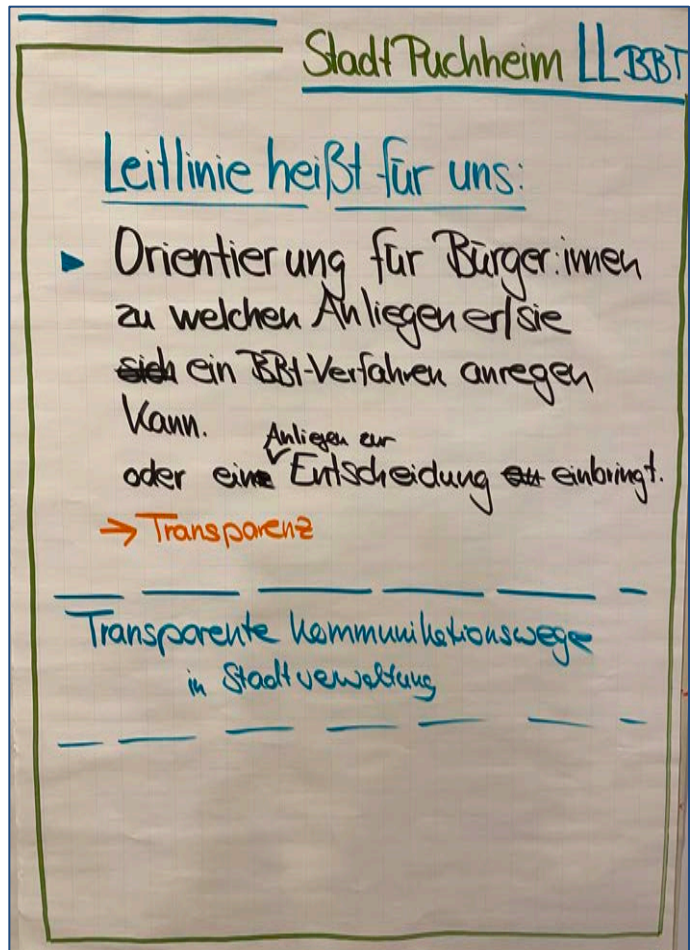 Stadt Puchheim LL BBT
Leitlinie heißt für uns:
▸ Orientierung für Bürger:innen
zu welchen Anliegen er/sie
sich ein BBT-Verfahren anregen
kann.
Anliegen zur
oder eine Entscheidung einbringt.
→ Transparenz
Transparente Kommunikationswege
in Stadtverwaltung